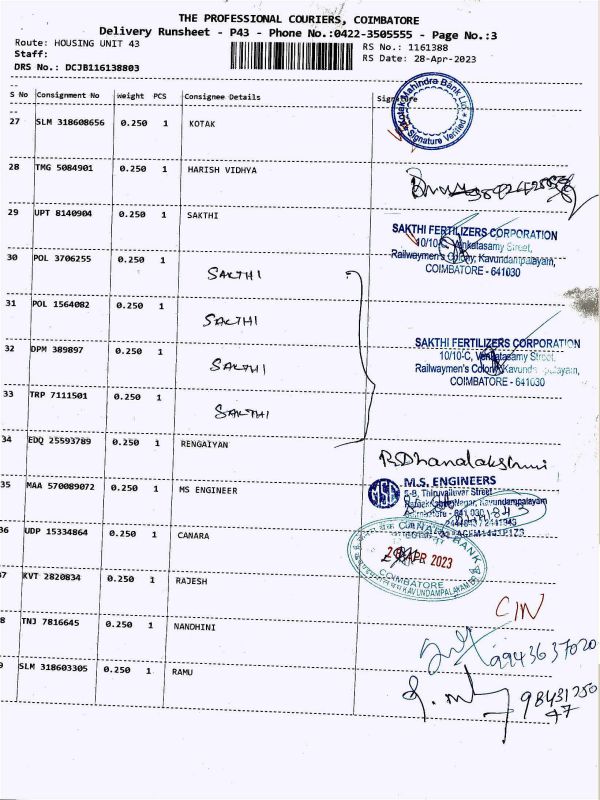 THE PROFESSIONAL COURIERS, COIMBATORE
Delivery Runsheet - P43 - Phone No.:0422-3505555 - Page No.:3
Route: HOUSING UNIT 43 RS No.: 1161388
Staff: RS Date: 28-Apr-2023
DRS No.: DCJB116138803
S No Consignment No Weight PCS Consignee Details Signature
Kotak Mahindra Bank Ltd.
Signature Verified
27 SLM 318608656 0.250 1 KOTAK
28 TMG 5084901 0.250 1 HARISH VIDHYA
29 UPT 8140904 0.250 1 SAKTHI
SAKTHI FERTILIZERS CORPORATION
10/10-C, Venkatasamy Street,
Railwaymen's Colony, Kavundampalayam,
COIMBATORE - 641030
30 POL 3706255 0.250 1 SAKTHI
31 POL 1564082 0.250 1 SAKTHI
32 DPM 389897 0.250 1 SAKTHI
SAKTHI FERTILIZERS CORPORATION
10/10-C, Venkatasamy Street,
Railwaymen's Colony, Kavundampalayam,
COIMBATORE - 641030
33 TRP 7111501 0.250 1 SAKTHI
34 EDQ 25593789 0.250 1 RENGAIYAN
R. Dhanalakshmi
35 MAA 570089072 0.250 1 MS ENGINEER
MSE M.S. ENGINEERS
Thiruvalluvar Street
Nagar, Kavundampalayam
36 UDP 15334864 0.250 1 CANARA
CANARA BANK
APR 2023
COIMBATORE
KAVUNDAMPALAYAM
7 KVT 2820834 0.250 1 RAJESH
C/N
8 TNJ 7816645 0.250 1 NANDHINI
9943637020
9 SLM 318603305 0.250 1 RAMU
98431250
47